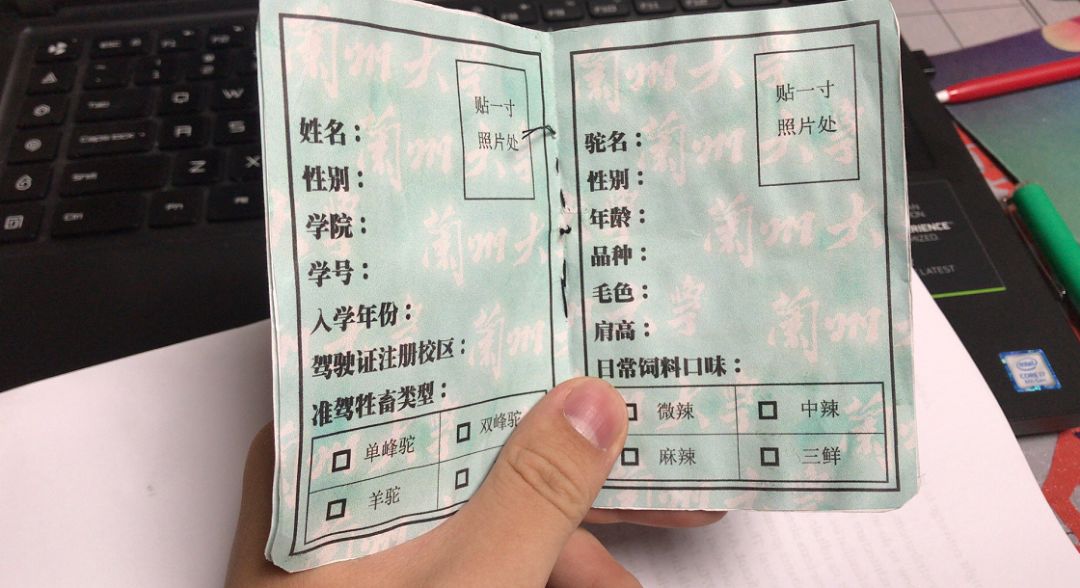 贴一寸
照片处
姓名：
性别：
学院：
学号：
入学年份：
驾驶证注册校区：
准驾牲畜类型：
单峰驼
双峰驼
羊驼
贴一寸
照片处
驼名：
性别：
年龄：
品种：
毛色：
肩高：
日常饲料口味：
微辣
中辣
麻辣
三鲜
兰州大学